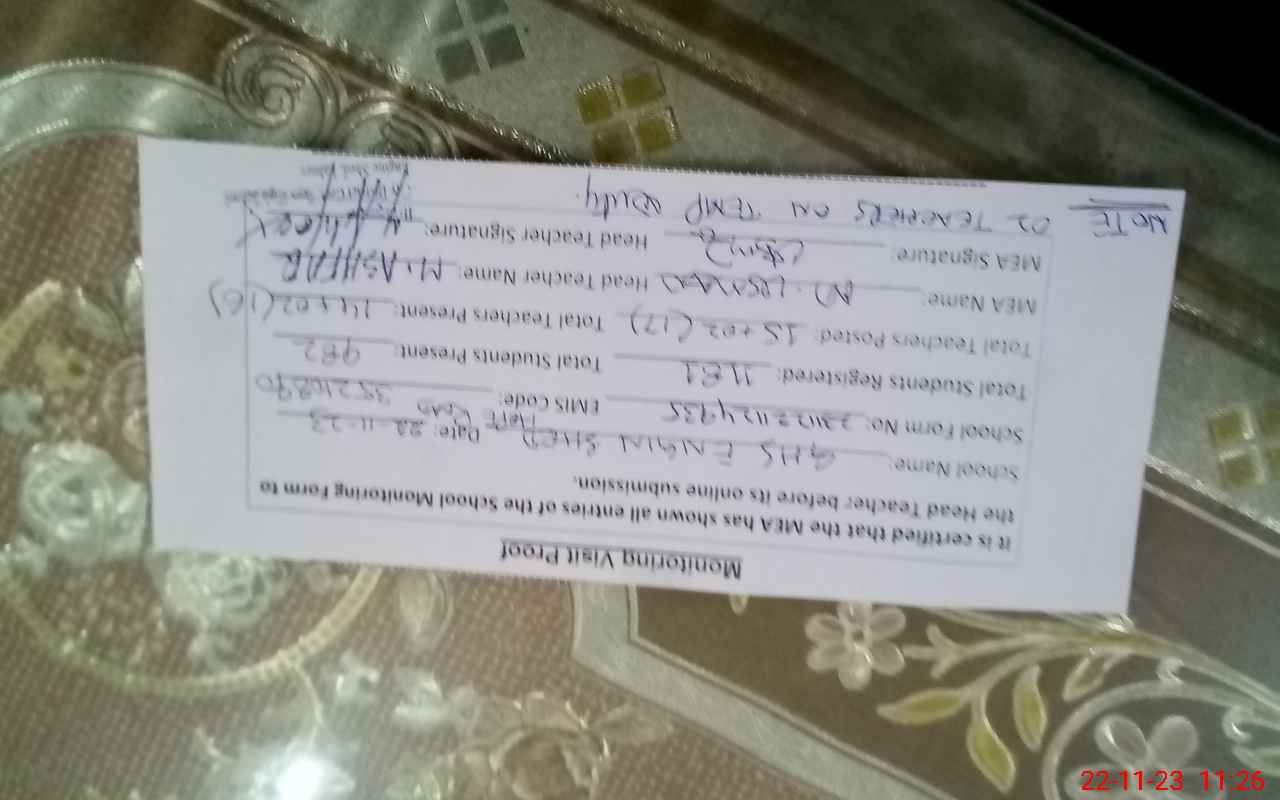 Monitoring Visit Proof
It is certified that the MEA has shown all entries of the School Monitoring Form to
the Head Teacher before its online submission.
School Name: GHS ENGIN SHED Date: 22-11-23
School Form No: EMIS Code: 35210890
Total Students Registered: 1181 Total Students Present: 982
Total Teachers Posted: 15+02 (17) Total Teachers Present: 14+02 (16)
MEA Name: M. USMAN Head Teacher Name: M. ASHFAQ
MEA Signature: Head Teacher Signature:
NOTE 02 TEACHERS ON TEMP Duty.
22-11-23 11:26